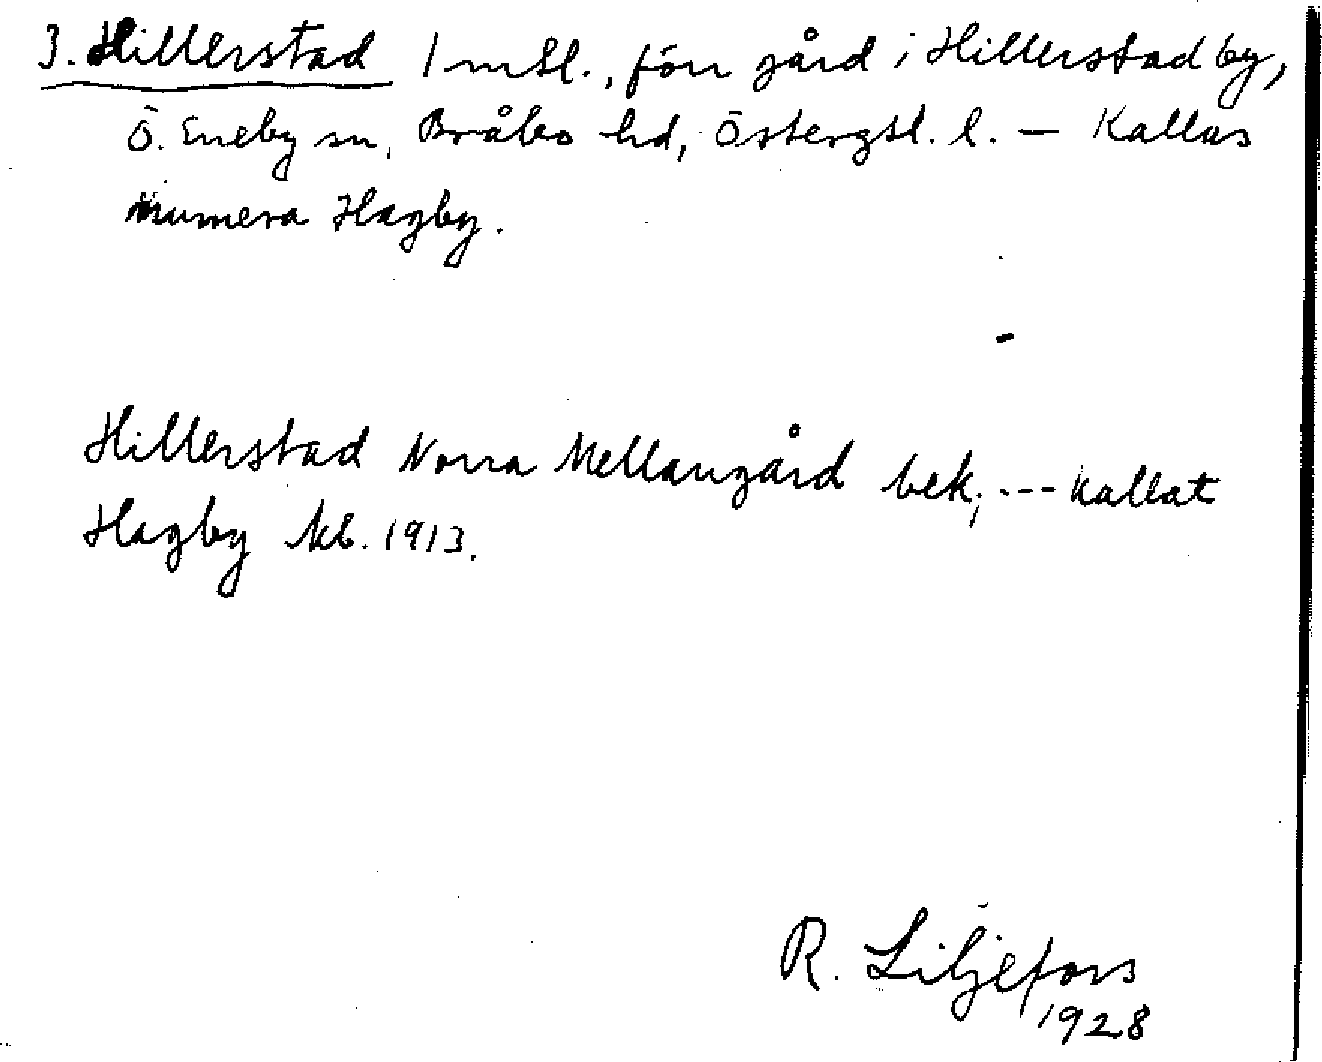 3. Hillerstad 1 mtl., förr gård i Hillerstad by,
Ö. Eneby sn, Bråbo hd, Östergtl. l. — Kallas
numera Hagby.
Hillerstad Norra Mellangård bek; --- kallat
Hagby kb. 1913.
R. Liljefors
1928